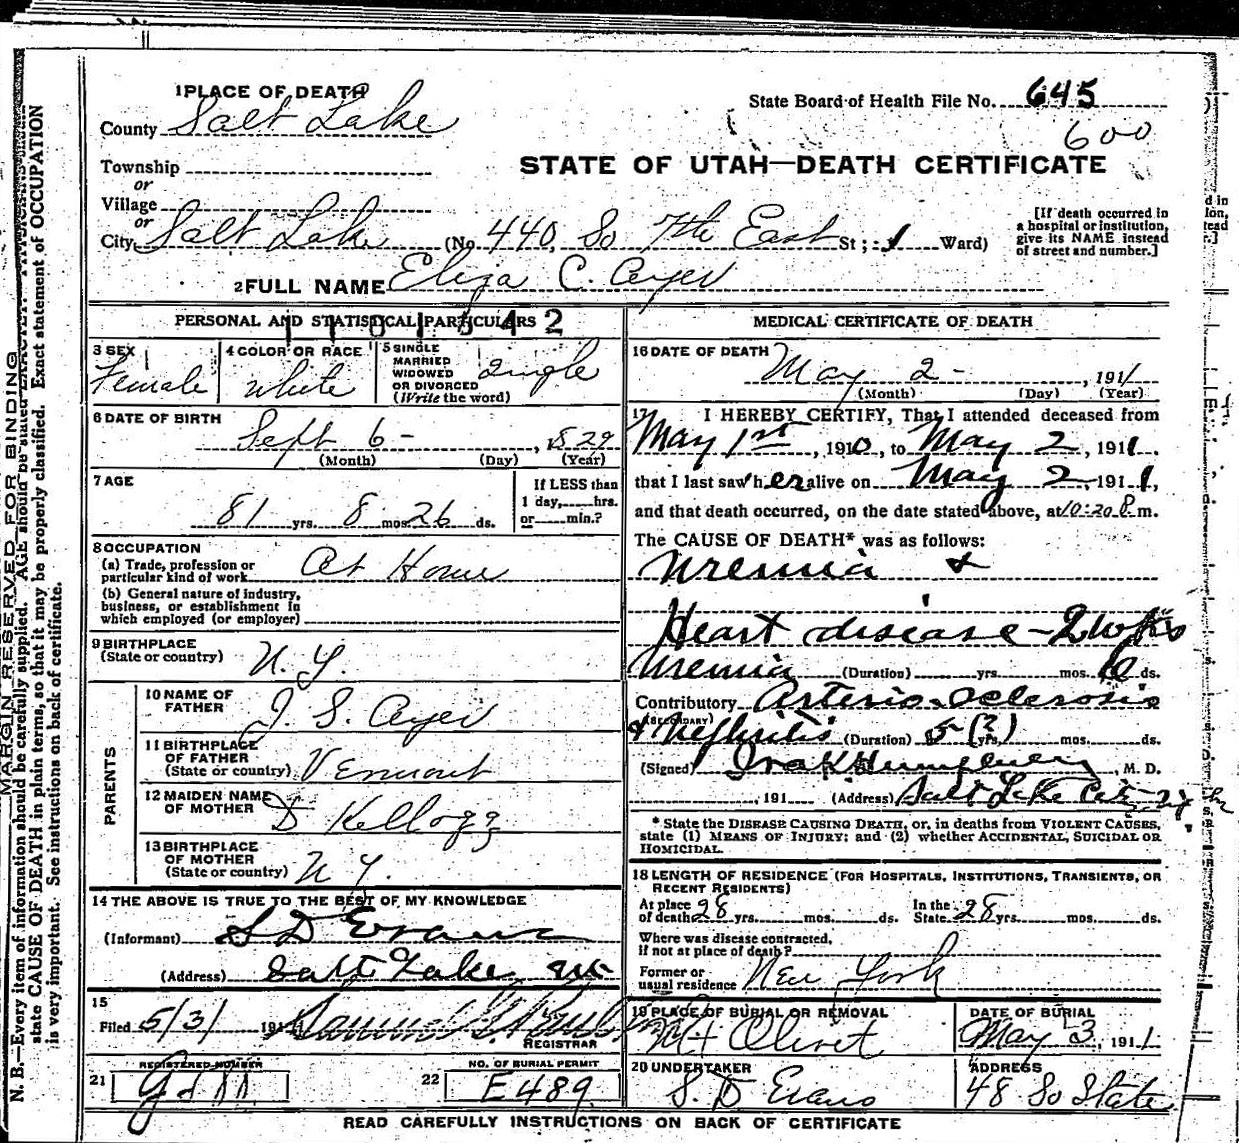 1 PLACE OF DEATH
County Salt Lake
State Board of Health File No. 645
600
Township
or
Village
or
City, Salt Lake (No. 440 So 7th East St; 1 Ward)
STATE OF UTAH—DEATH CERTIFICATE
[If death occurred in
a hospital or institution,
give its NAME instead
of street and number.]
2 FULL NAME Eliza C. Ayer
PERSONAL AND STATISTICAL PARTICULARS
3 SEX
Female
4 COLOR OR RACE
White
5 SINGLE
MARRIED
WIDOWED
OR DIVORCED
(Write the word)
Single
6 DATE OF BIRTH
Sept 6 - , 1829
(Month) (Day) (Year)
7 AGE
81 yrs. 8 mos. 26 ds.
If LESS than
1 day,____hrs.
or____min.?
8 OCCUPATION
(a) Trade, profession or
particular kind of work At Home
(b) General nature of industry,
business, or establishment in
which employed (or employer)
9 BIRTHPLACE
(State or country) N. Y.
PARENTS
10 NAME OF
FATHER J. S. Ayer
11 BIRTHPLACE
OF FATHER
(State or country) Vermont
12 MAIDEN NAME
OF MOTHER D Kellogg
13 BIRTHPLACE
OF MOTHER
(State or country) N. Y.
14 THE ABOVE IS TRUE TO THE BEST OF MY KNOWLEDGE
(Informant) S D Evans
(Address) Salt Lake
15
Filed 5/3/ 191
REGISTRAR
REGISTERED NUMBER
21
NO. OF BURIAL PERMIT
22 E489
MEDICAL CERTIFICATE OF DEATH
16 DATE OF DEATH
May 2 - , 1911
(Month) (Day) (Year)
17 I HEREBY CERTIFY, That I attended deceased from
May 1st , 1910, to May 2 , 1911.
that I last saw her alive on May 2, 1911,
and that death occurred, on the date stated above, at 10:20 P. m.
The CAUSE OF DEATH* was as follows:
Uremia &
Heart disease - 2 wks
Uremia (Duration) yrs. mos. 10 ds.
Contributory Arterio-sclerosis
(SECONDARY)
& Nephritis (Duration) 5 (?) yrs. mos. ds.
(Signed) Ira K Humphrey, M. D.
, 191 (Address) Salt Lake City,
* State the DISEASE CAUSING DEATH, or, in deaths from VIOLENT CAUSES,
state (1) MEANS OF INJURY; and (2) whether ACCIDENTAL, SUICIDAL OR
HOMICIDAL.
18 LENGTH OF RESIDENCE (FOR HOSPITALS, INSTITUTIONS, TRANSIENTS, OR
RECENT RESIDENTS)
At place
of death 28 yrs. mos. ds.
In the
State 28 yrs. mos. ds.
Where was disease contracted,
if not at place of death?
Former or
usual residence New York
19 PLACE OF BURIAL OR REMOVAL
Mt Olivet
DATE OF BURIAL
May 3, 1911
20 UNDERTAKER
S. D Evans
ADDRESS
48 So State
READ CAREFULLY INSTRUCTIONS ON BACK OF CERTIFICATE
MARGIN RESERVED FOR BINDING
N. B.—Every item of information should be carefully supplied. AGE should be stated EXACTLY. PHYSICIANS should
state CAUSE OF DEATH in plain terms, so that it may be properly classified. Exact statement of OCCUPATION
is very important. See instructions on back of certificate.